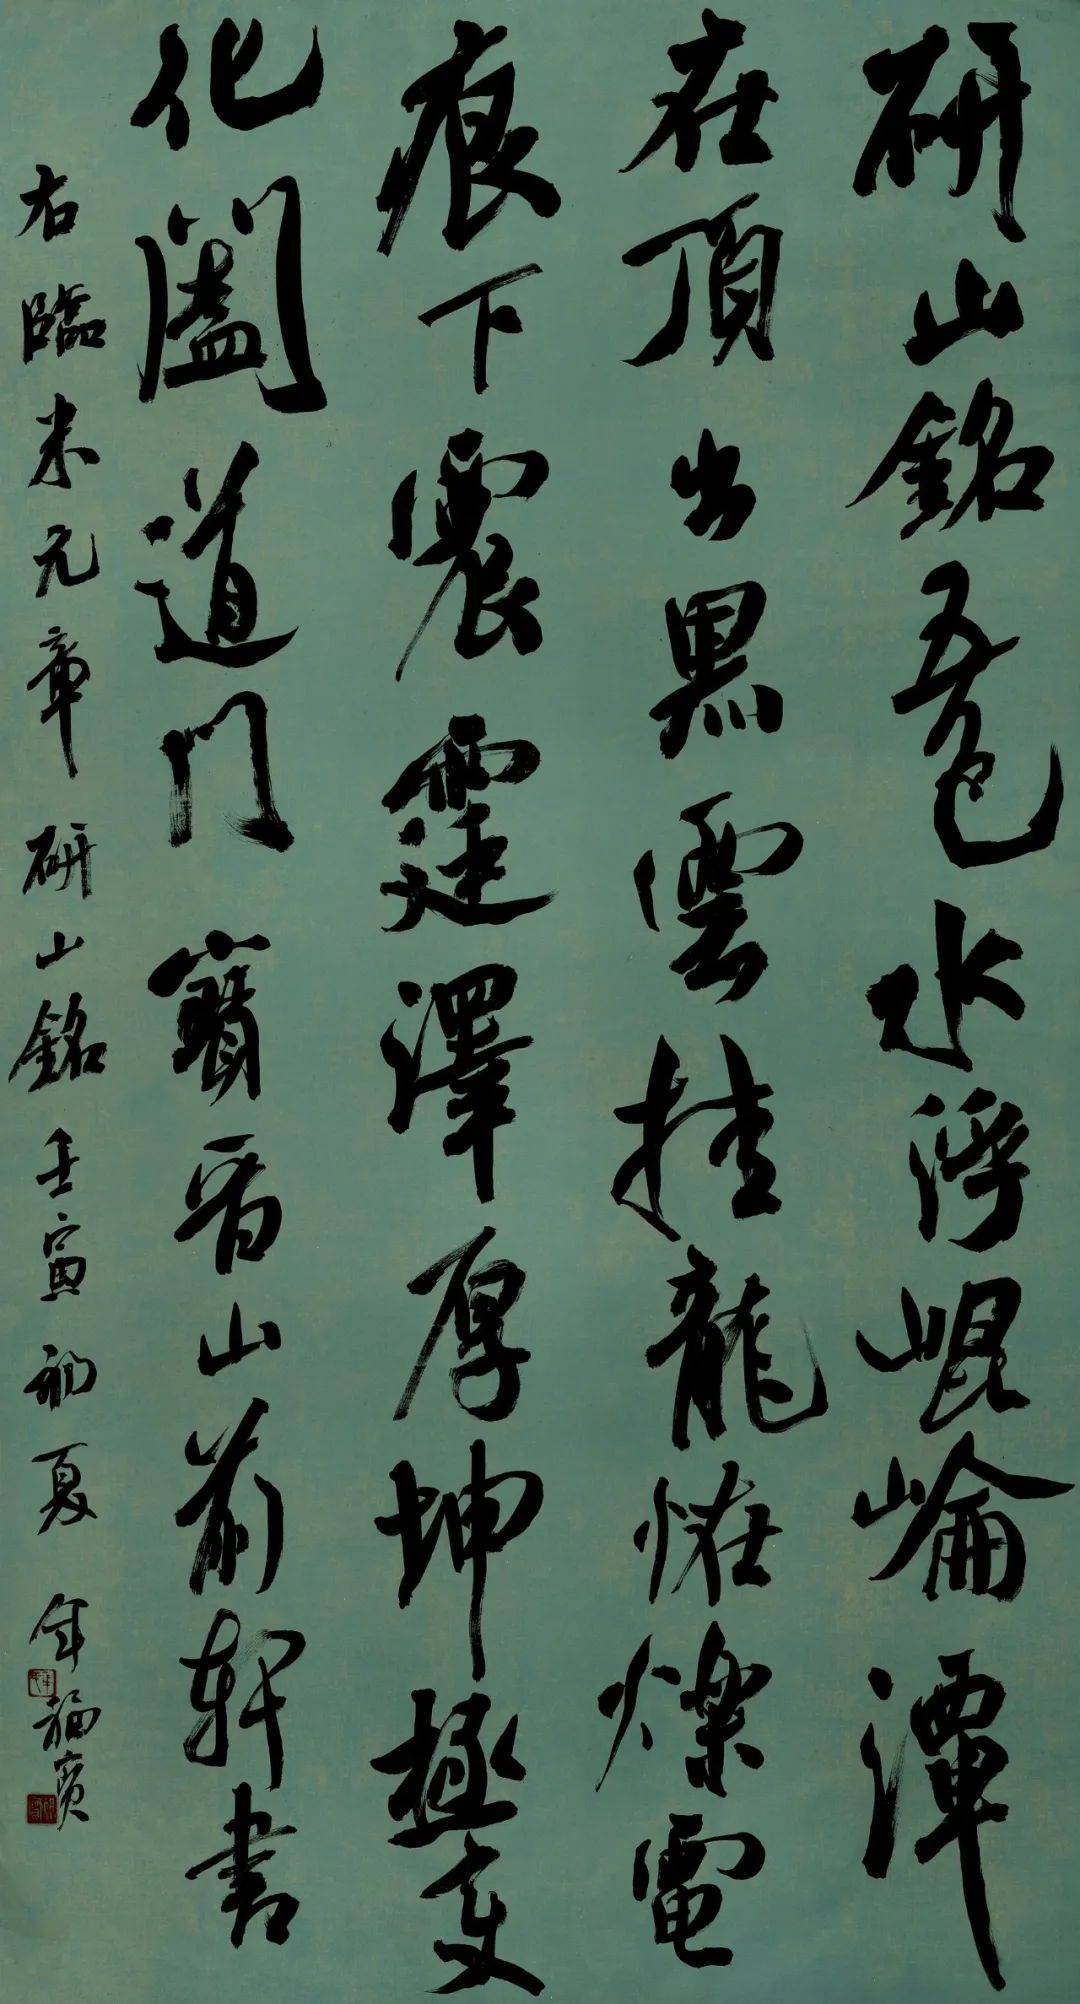 研山銘五色水浮崐崘潭
在頂出黑雲挂龍怪爍電
痕下震霆澤厚坤極变
化闔道門寶晋山前軒書
右臨米元章研山銘壬寅初夏年福賓